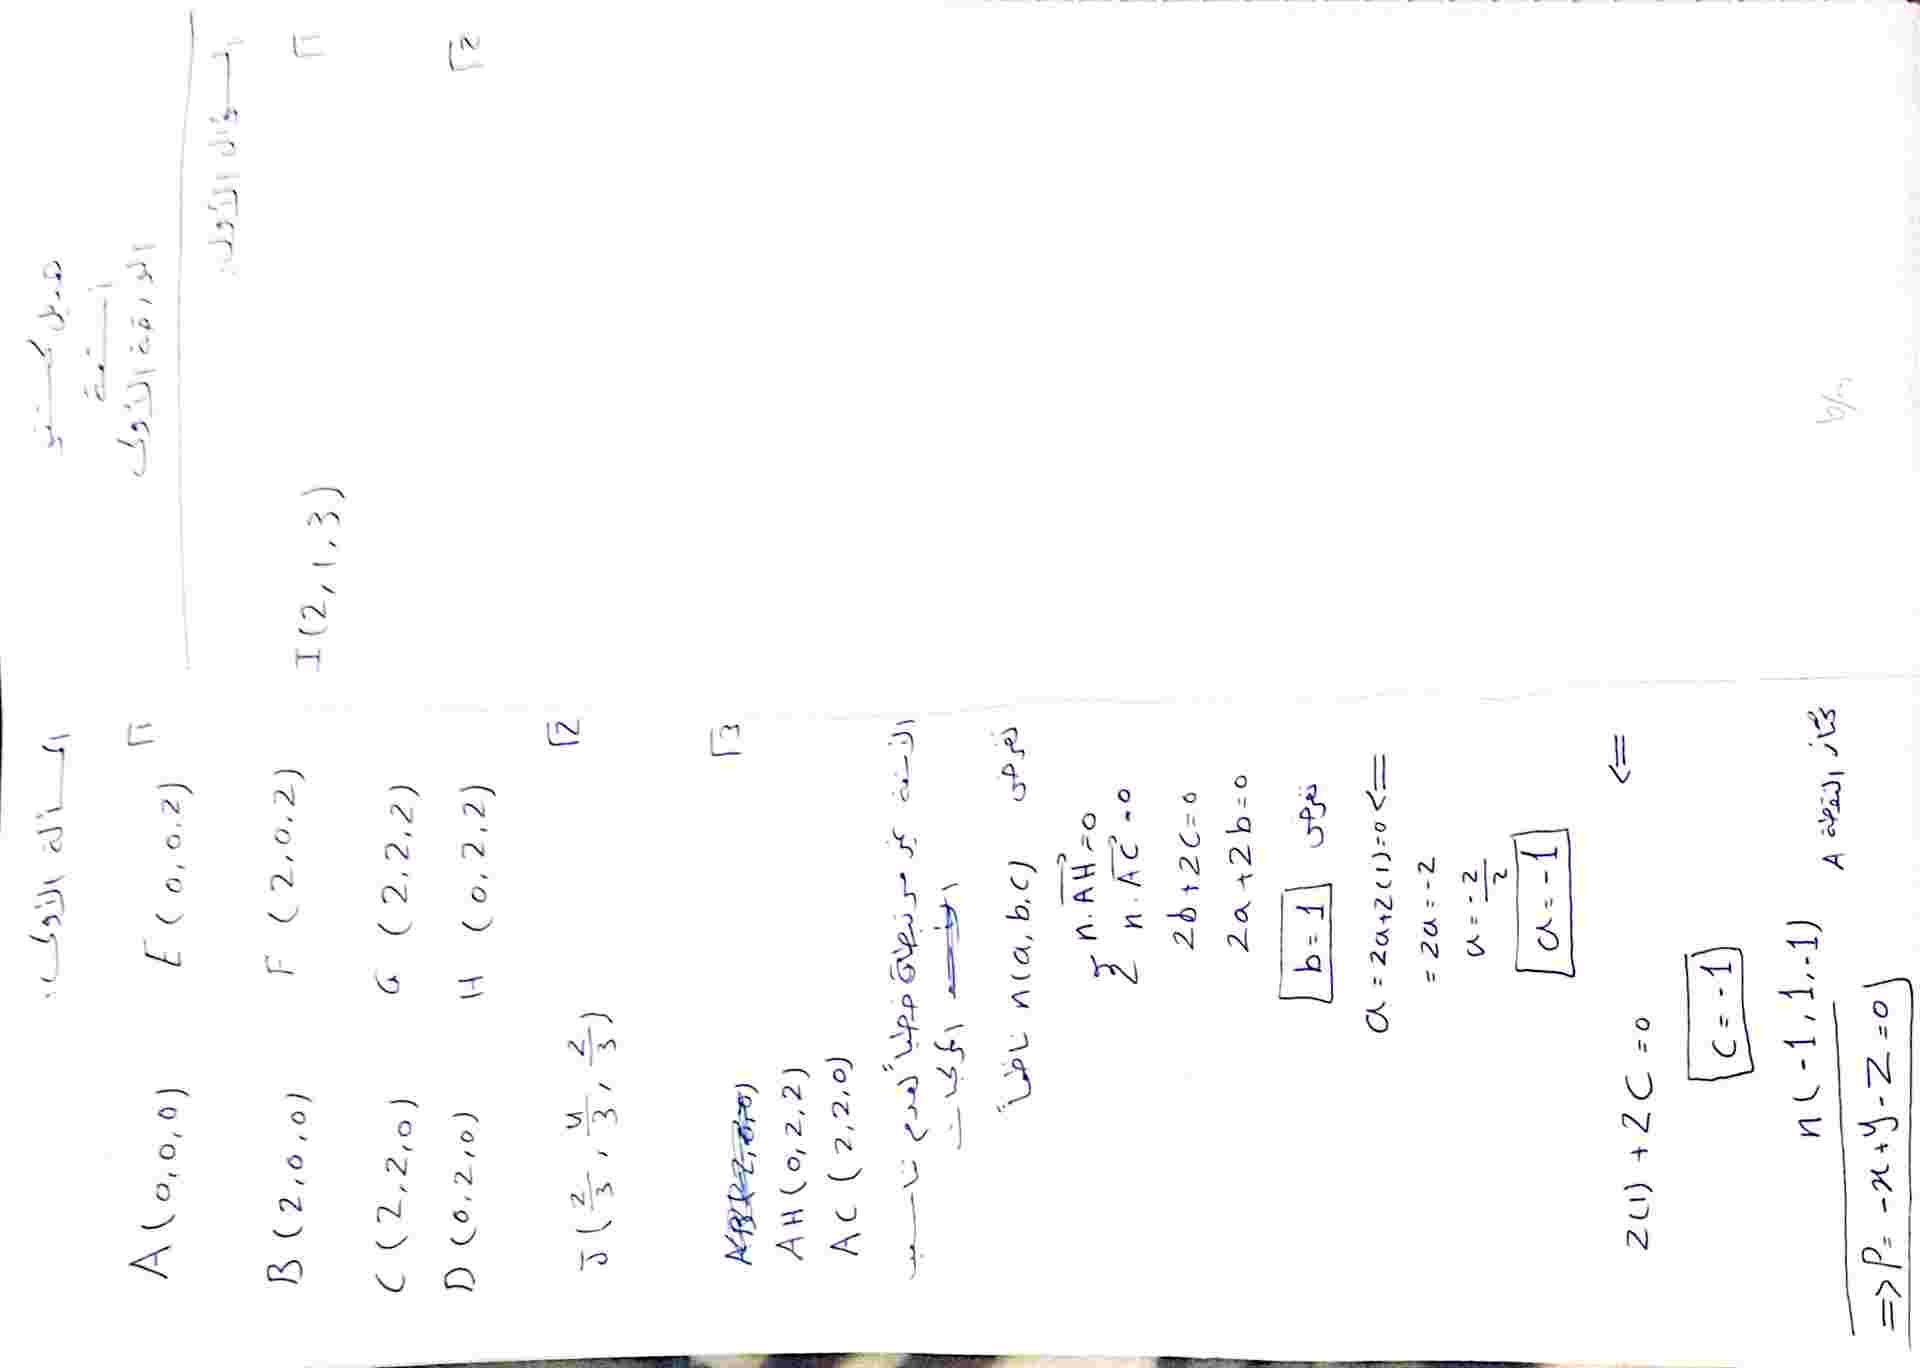 هديل
أسعة
الورقة الأولى
السؤال الأول:
1
I (2, 1, 3)
2
المسألة الأولى:
1
A (0,0,0) E (0,0,2)
B (2,0,0) F (2,0,2)
C (2,2,0) G (2,2,2)
D (0,2,0) H (0,2,2)
2
J (2/3, 4/3, 2/3)
3
AH (0,2,2)
AC (2,2,0)
الأشعة غير مرتبطة خطياً لعدم تناسب
المركبات
نفرض n(a,b,c) ناظماً
n.AH=0
n.AC=0
2b+2c=0
2a+2b=0
نفرض b=1
a=2a+2(1)=0 <=
=2a=-2
a=-2/2
a=-1
<=
2(1)+2C=0
c=-1
n(-1,1,-1)
A النقطة
=>P=-x+y-z=0